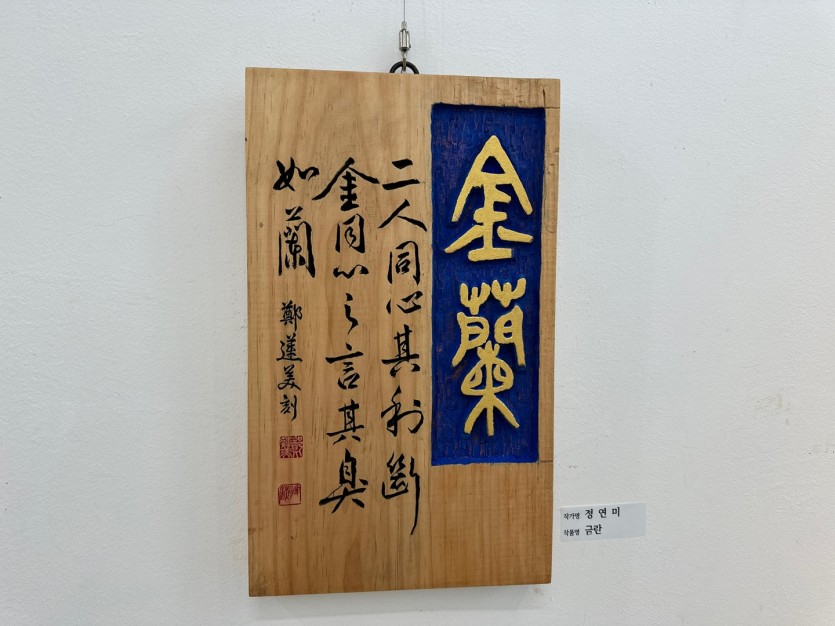 金蘭
二人同心其利斷
金同心之言其臭
如蘭
鄭蓮美刻
작가명 정연미
작품명 금란